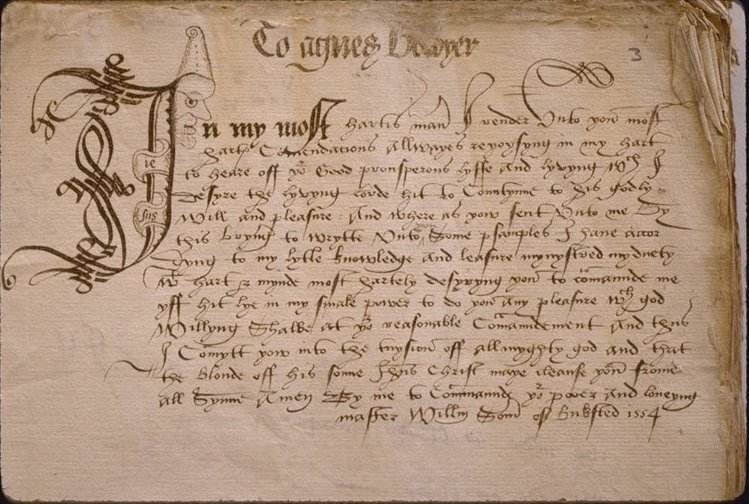 To agnes Bowyer
3
In my most hartis man I render Unto your most
harty Comendations allwayes reioysyng in my hart
to heare off yor Good prousperous lyffe and lyvyng Wch I
desyre the lyvyng lorde hit to Contynue to his godly
Will and pleasure : And Where as yow sent Unto me by
this bryng to Wrytte Unto yow Some psamples I have Accor
dyng to my lytle knowledge and leasure mynystred my duety
Wt hart & mynde most hartely desyryng yow to comaunde me
yff hit lye in my smale power to do yow any pleasure Wch god
Willyng Shalbe at yor reasonable Comaundement And thus
I Comytt yow into the tuysion off allmyghty god and that
the bloude off his sonne Jhus Christ maye cleanse yow frome
all Synne Amen By me to Commaunde yor power and loveyng
master Willm of 1554
ie
sus